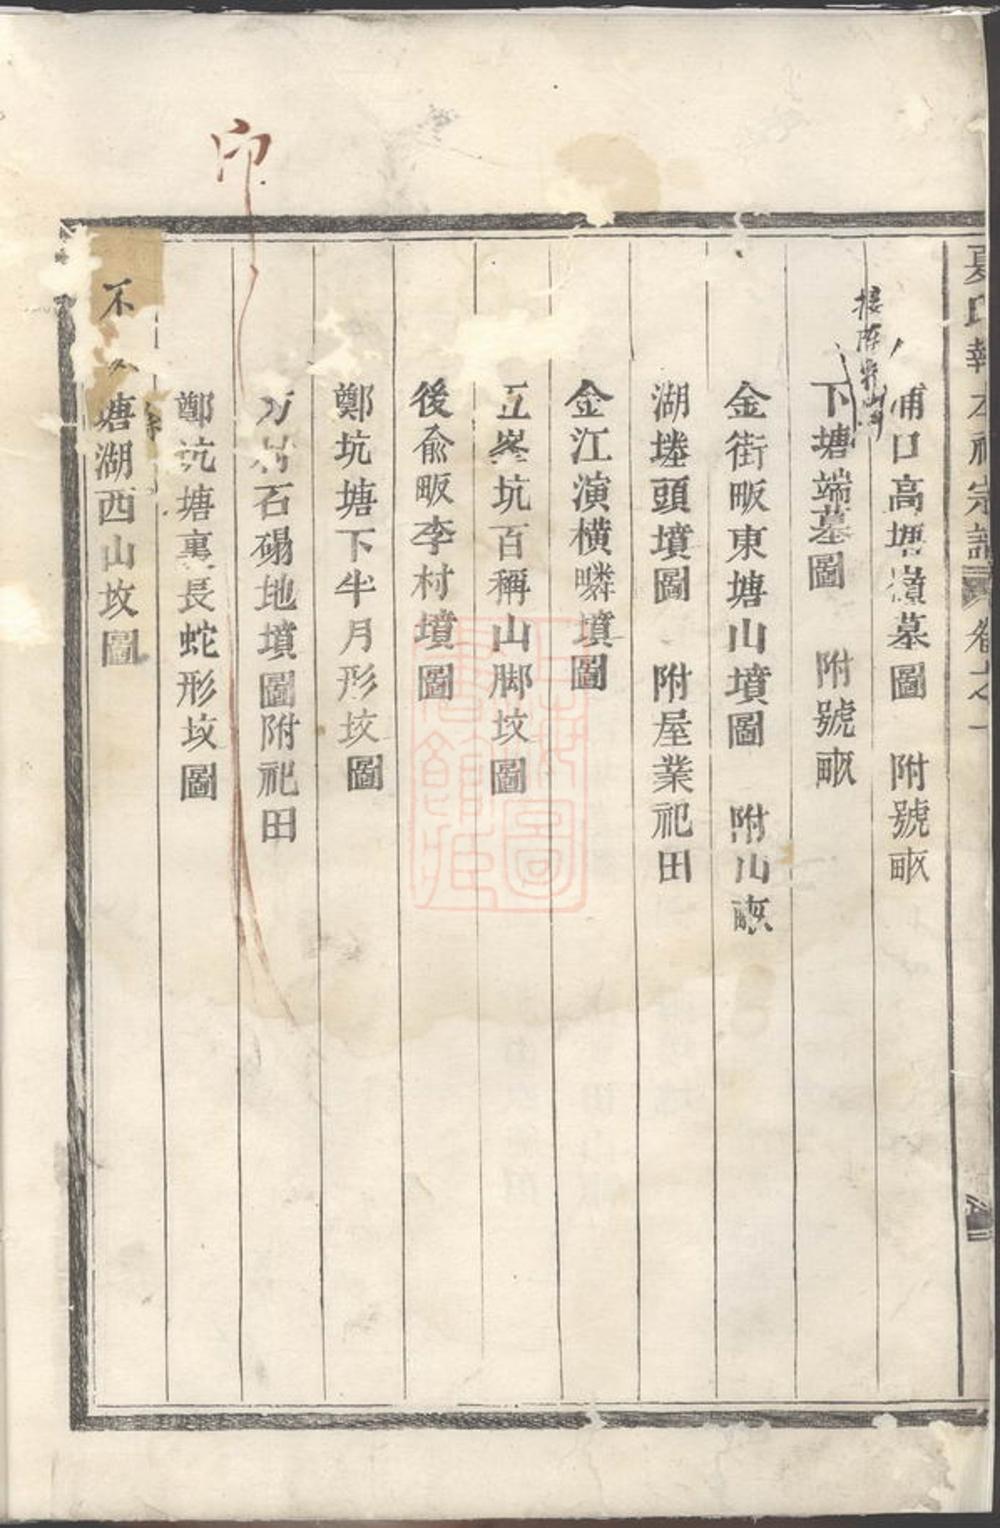 夏氏報本祠宗譜 卷之一
浦口高塘嶺墓圖 附號畝
下塘端墓圖 附號畝
金街畈東塘山墳圖 附山畝
湖塍頭墳圖 附屋業祀田
金江演橫疄墳圖
五峯坑百稱山脚坟圖
後俞畈李村墳圖
鄭坑塘下半月形坟圖
方村石磖地墳圖附祀田
鄭坑塘裏長蛇形坟圖
塘湖西山坟圖
不
印